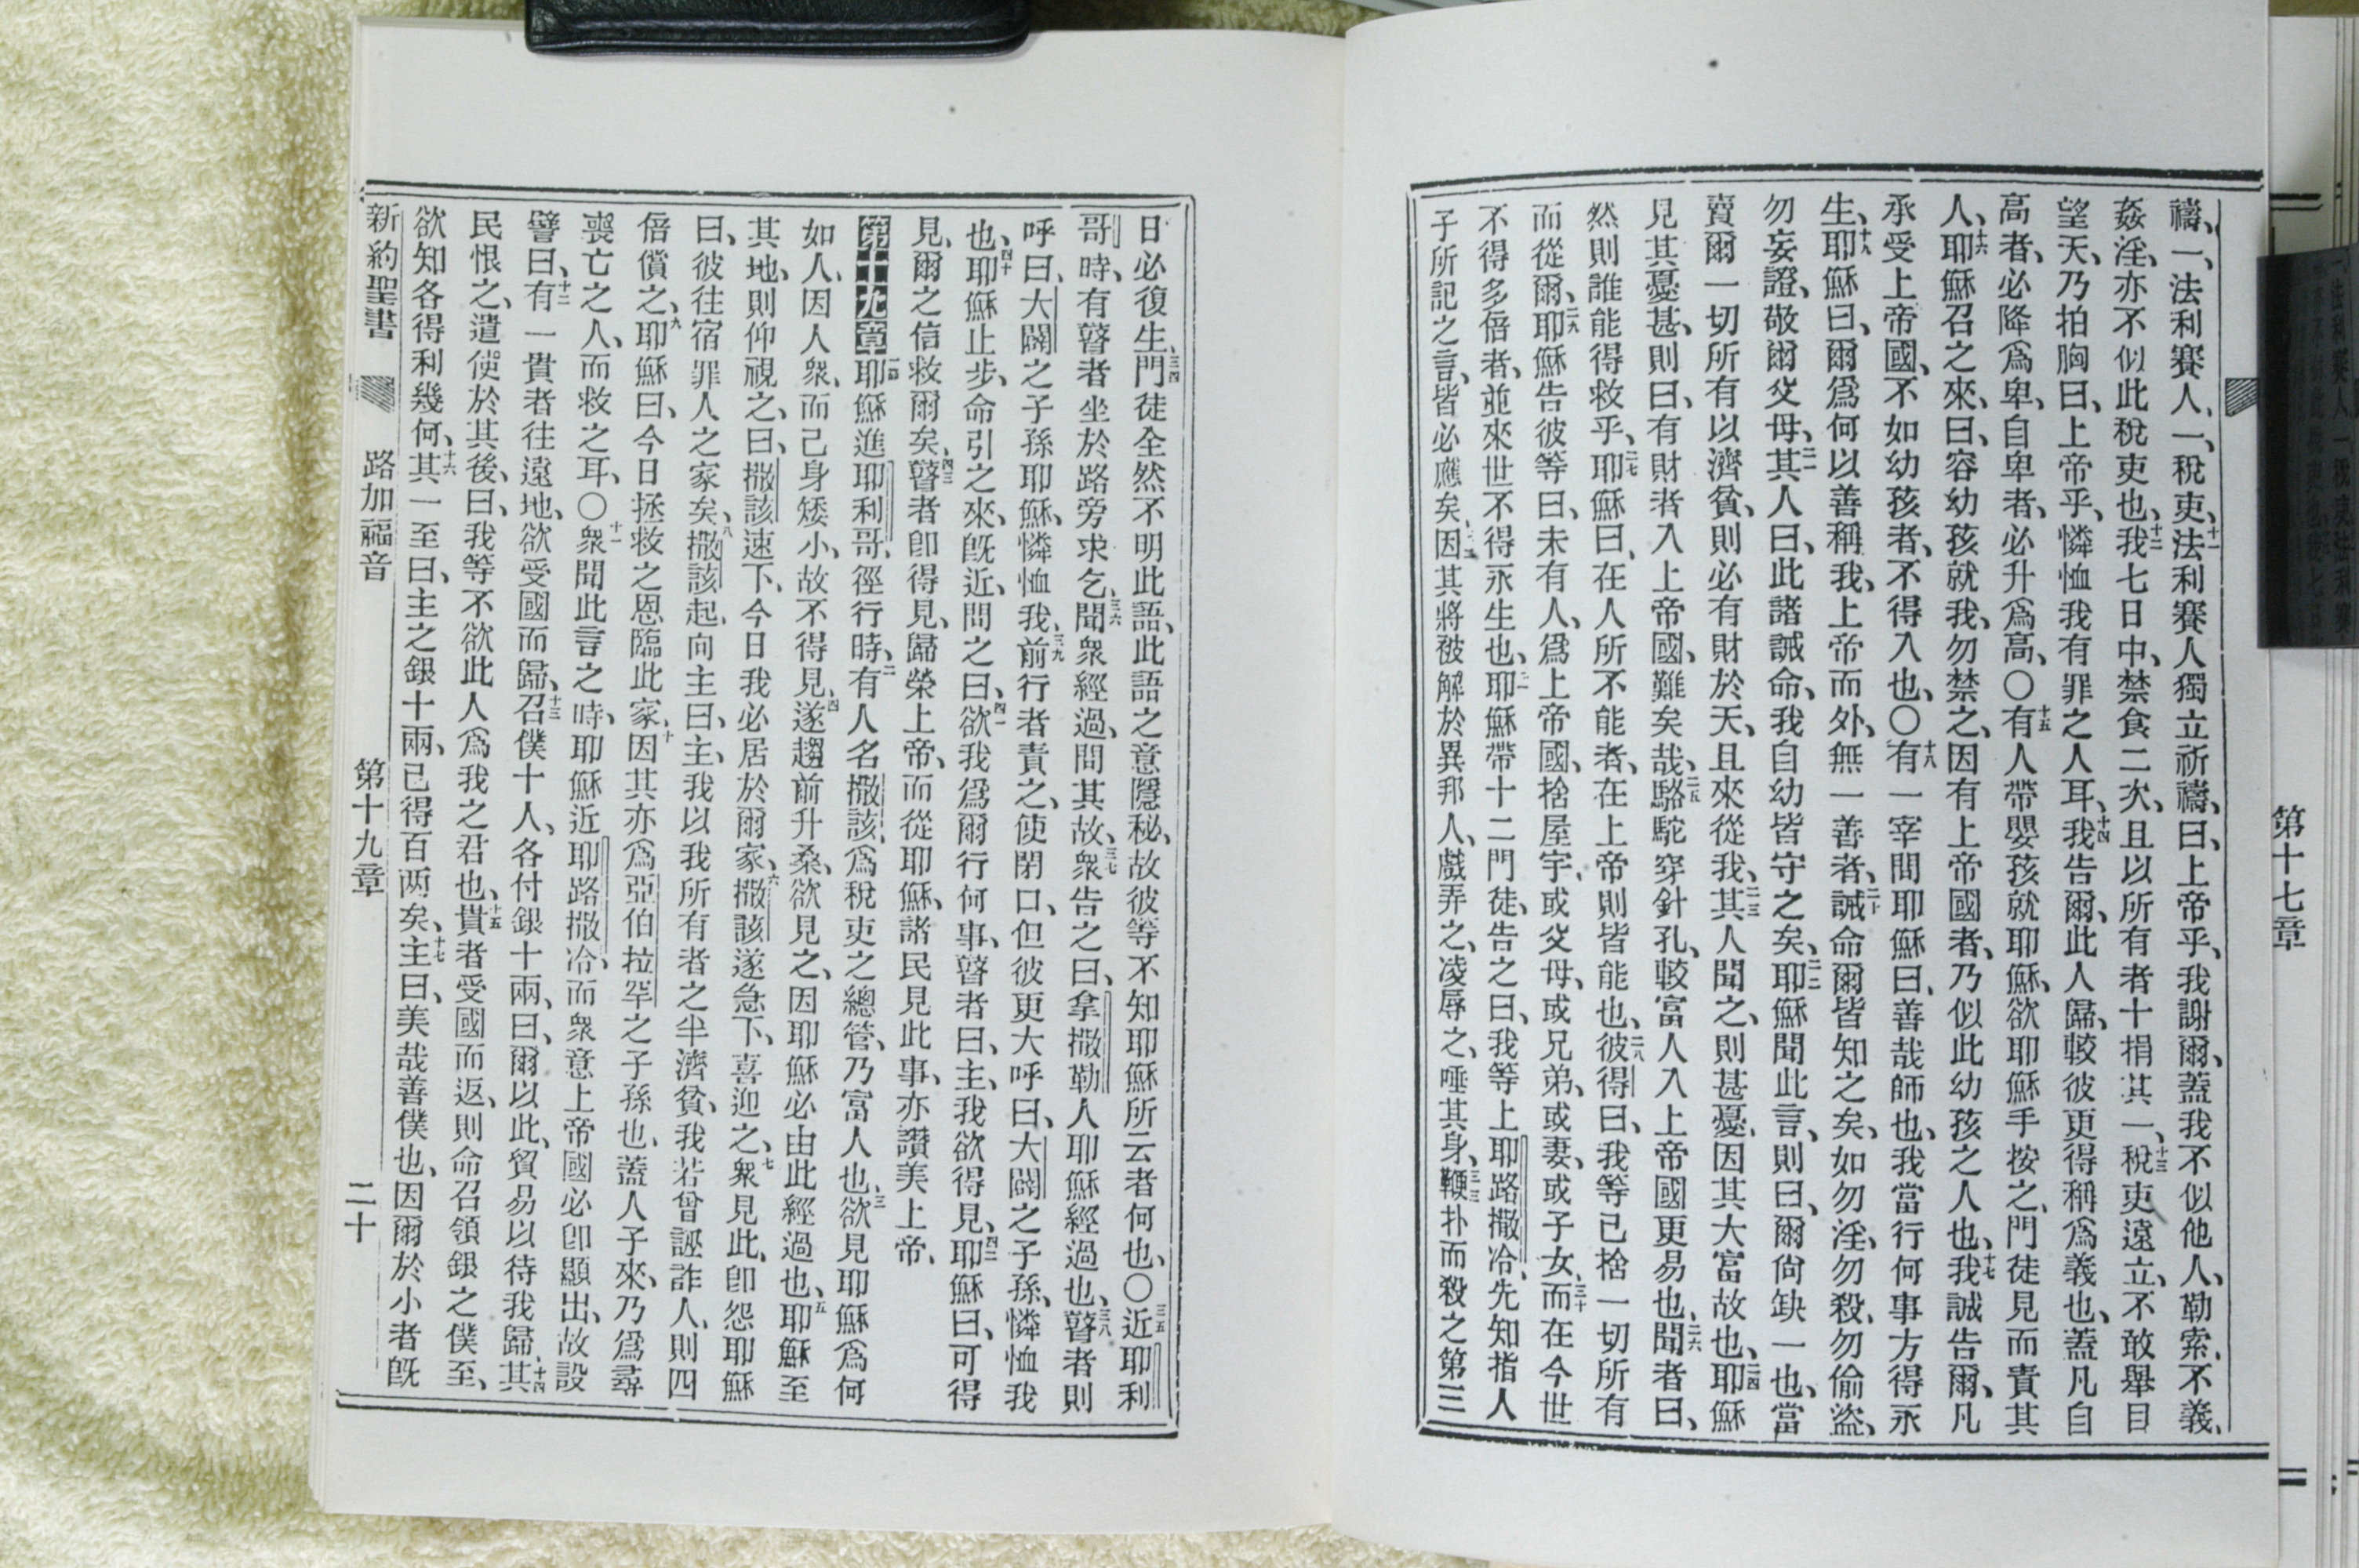 禱、一、法利賽人、一、稅吏、十一法利賽人獨立祈禱、曰、上帝乎、我謝爾、蓋我不似他人、勒索、不義、
姦淫、亦不似此稅吏也、十二我七日中、禁食二次、且以所有者十捐其一、十三稅吏遠立、不敢舉目
望天、乃拍胸曰、上帝乎、憐恤我有罪之人耳、十四我告爾、此人歸、較彼更得稱爲義也、蓋凡自
高者、必降爲卑、自卑者、必升爲高、〇十五有人帶嬰孩就耶穌、欲耶穌手按之、門徒見而責其
人、十六耶穌召之來、曰、容幼孩就我、勿禁之、因有上帝國者、乃似此幼孩之人也、十七我誠告爾、凡
承受上帝國、不如幼孩者、不得入也、〇十八有一宰問耶穌曰、善哉師也、我當行何事方得永
生、十九耶穌曰、爾爲何以善稱我、上帝而外、無一善者、二十誡命爾皆知之矣、如勿淫、勿殺、勿偷盜、
勿妄證、敬爾父母、二一其人曰、此諸誡命、我自幼皆守之矣、二二耶穌聞此言、則曰、爾尚缺一也、當
賣爾一切所有以濟貧、則必有財於天、且來從我、二三其人聞之、則甚憂、因其大富故也、二四耶穌
見其憂甚、則曰、有財者入上帝國、難矣哉、二五駱駝穿針孔、較富人入上帝國更易也、二六聞者曰、
然則誰能得救乎、二七耶穌曰、在人所不能者、在上帝則皆能也、二八彼得曰、我等已捨一切所有
而從爾、二九耶穌告彼等曰、未有人、爲上帝國、捨屋宇、或父母、或兄弟、或妻、或子女、三十而在今世
不得多倍者、並來世不得永生也、三一耶穌帶十二門徒、告之曰、我等上耶路撒冷、先知指人
子所記之言、皆必應矣、三二因其將被解於異邦人、戲弄之、凌辱之、唾其身、三三鞭扑而殺之第三
第十七章
日必復生、三四門徒全然不明此語、此語之意隱秘、故彼等不知耶穌所云者何也、〇三五近耶利
哥時、有瞽者坐於路旁求乞、三六聞衆經過、問其故、三七衆告之曰、拿撒勒人耶穌經過也、三八瞽者則
呼曰、大闢之子孫耶穌、憐恤我、三九前行者責之、使閉口、但彼更大呼曰、大闢之子孫、憐恤我
也、四十耶穌止步、命引之來、旣近、問之曰、四一欲我爲爾行何事、瞽者曰、主、我欲得見、四二耶穌曰、可得
見、爾之信救爾矣、四三瞽者卽得見、歸榮上帝、而從耶穌、諸民見此事、亦讚美上帝、
第十九章一耶穌進耶利哥、徑行時、二有人名撒該、爲稅吏之總管、乃富人也、三欲見耶穌爲何
如人、因人衆、而己身矮小、故不得見、四遂趨前升桑、欲見之、因耶穌必由此經過也、五耶穌至
其地、則仰視之、曰、撒該速下、今日我必居於爾家、六撒該遂急下、喜迎之、七衆見此、卽怨耶穌
曰、彼往宿罪人之家矣、八撒該起、向主曰、主、我以我所有者之半濟貧、我若曾誣詐人、則四
倍償之、九耶穌曰、今日拯救之恩臨此家、十因其亦爲亞伯拉罕之子孫也、蓋人子來、乃爲尋
喪亡之人、而救之耳、〇十一衆聞此言之時、耶穌近耶路撒冷、而衆意上帝國必卽顯出、故設
譬曰、十二有一貴者往遠地、欲受國而歸、十三召僕十人、各付銀十兩、曰、爾以此、貿易以待我歸、十四其
民恨之、遣使於其後、曰、我等不欲此人爲我之君也、十五貴者受國而返、則命召領銀之僕至、
欲知各得利幾何、十六其一至曰、主之銀十兩、已得百两矣、十七主曰、美哉善僕也、因爾於小者旣
新約聖書 路加福音 第十九章 二十